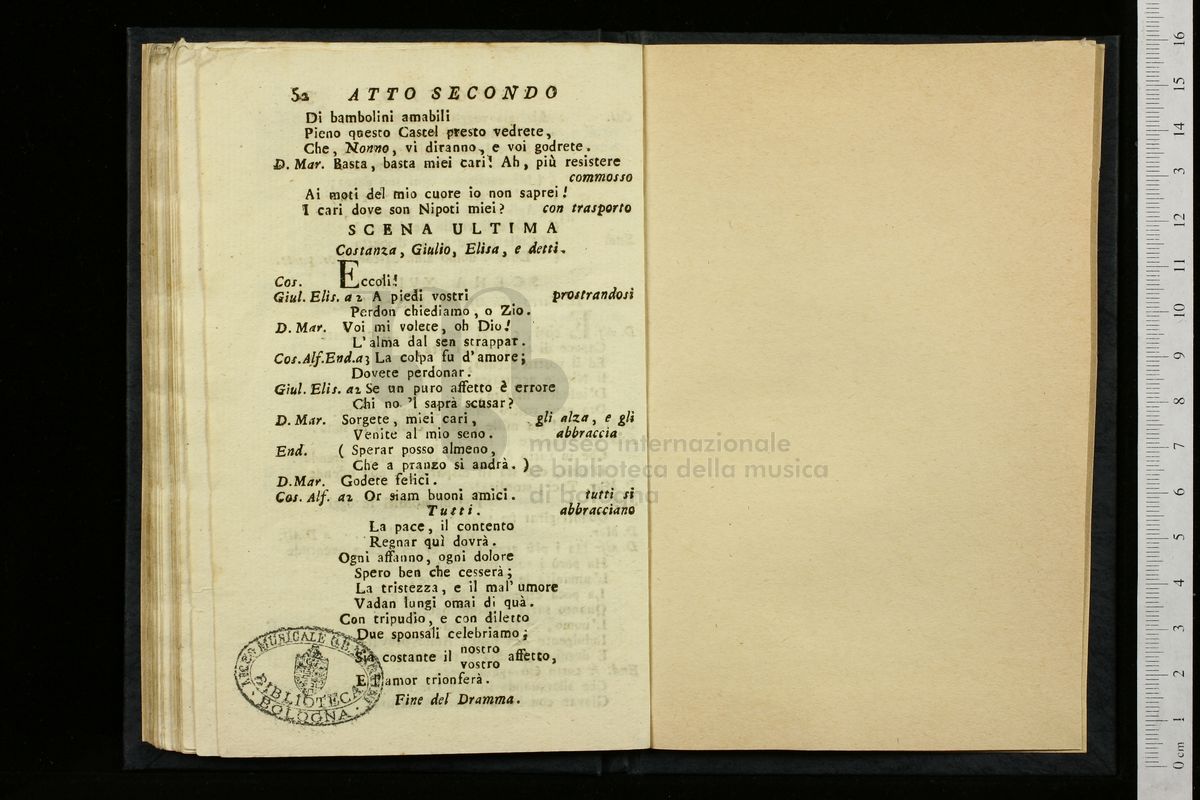 52 ATTO SECONDO
Di bambolini amabili
Pieno questo Castel presto vedrete,
Che, Nonno, vi diranno, e voi godrete.
D. Mar. Basta, basta miei cari! Ah, più resistere
commosso
Ai moti del mio cuore io non saprei!
I cari dove son Nipoti miei? con trasporto
SCENA ULTIMA
Costanza, Giulio, Elisa, e detti.
Cos. Eccoli!
Giul. Elis. a 2 A piedi vostri prostrandosi
Perdon chiediamo, o Zio.
D. Mar. Voi mi volete, oh Dio!
L'alma dal sen strappar.
Cos. Alf. End. a 3 La colpa fu d'amore;
Dovete perdonar.
Giul. Elis. a 2 Se un puro affetto è errore
Chi no 'l saprà scusar?
D. Mar. Sorgete, miei cari, gli alza, e gli
Venite al mio seno. abbraccia
End. ( Sperar posso almeno,
Che a pranzo si andrà. )
D. Mar. Godete felici.
Cos. Alf. a 2 Or siam buoni amici. tutti si
Tutti. abbracciano
La pace, il contento
Regnar quì dovrà.
Ogni affanno, ogni dolore
Spero ben che cesserà;
La tristezza, e il mal' umore
Vadan lungi omai di quà.
Con tripudio, e con diletto
Due sponsali celebriamo;
Sia costante il nostro affetto,
vostro
E l'amor trionferà.
Fine del Dramma.
LICEO MUSICALE
BIBLIOTECA
BOLOGNA
museo internazionale
e biblioteca della musica
di bologna
0 cm 1 2 3 4 5 6 7 8 9 10 11 12 13 14 15 16